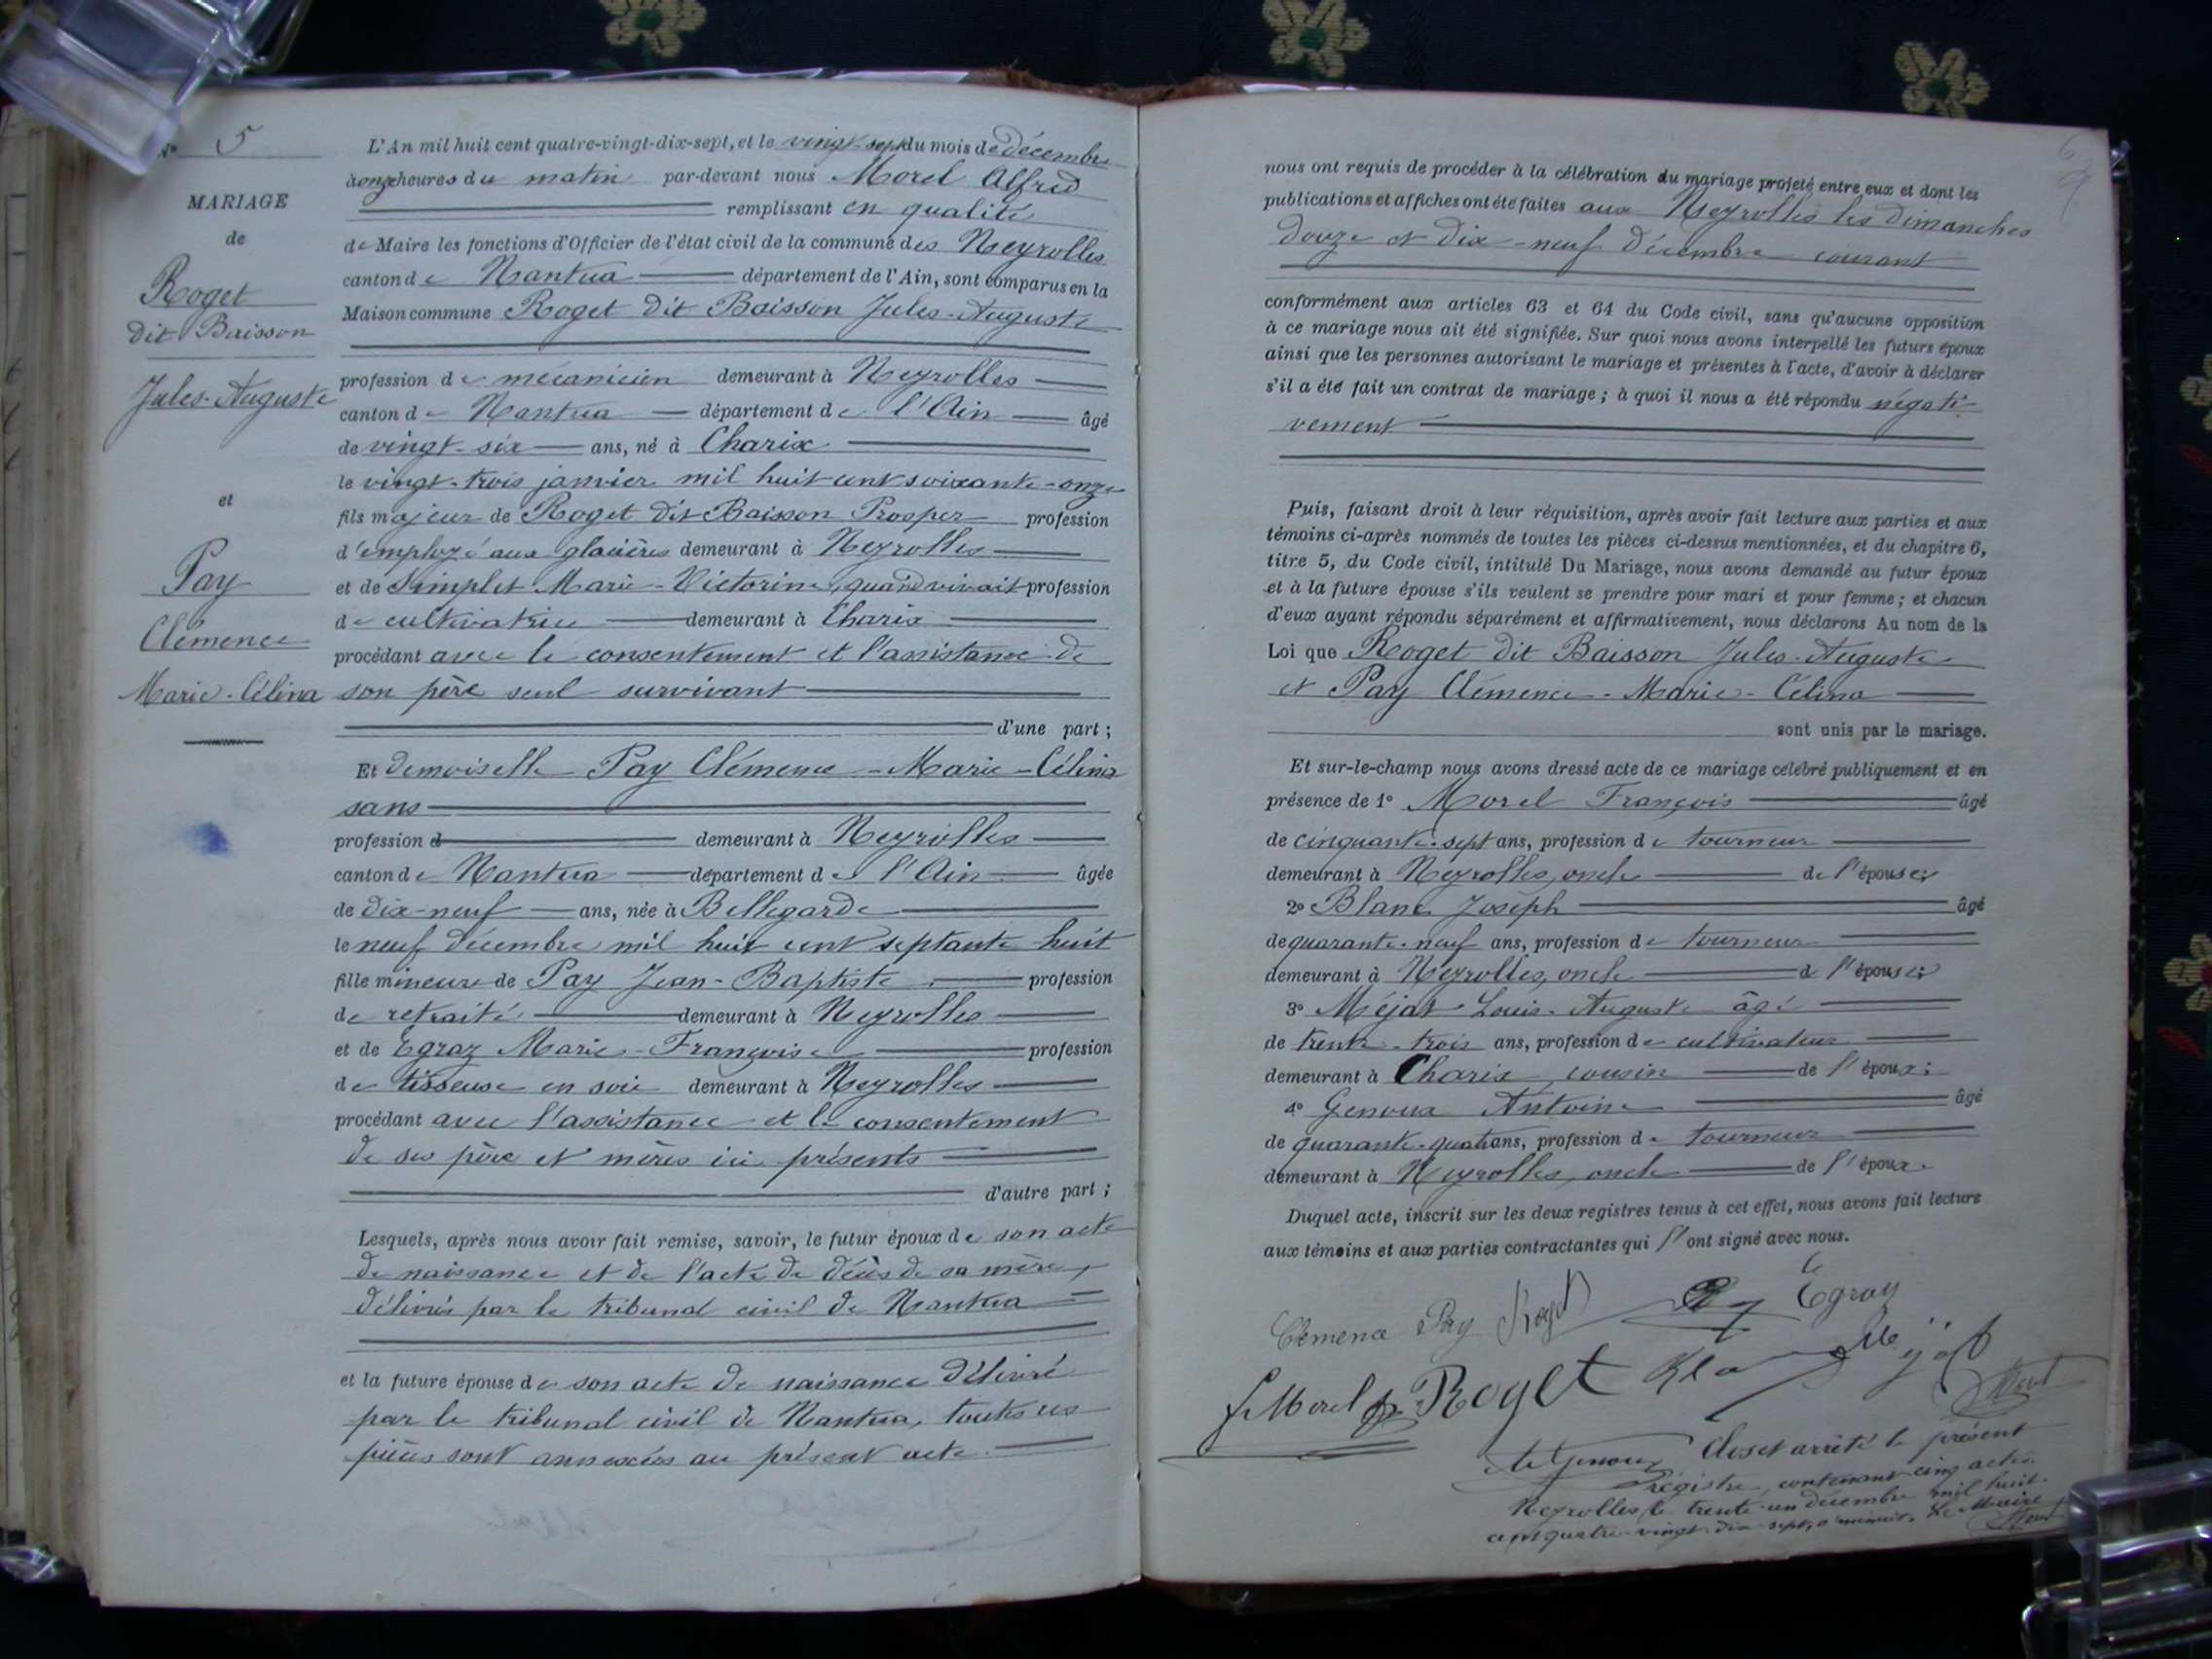 N° 5
MARIAGE
de
Roget
dit Baisson
Jules-Auguste
et
Pay
Clémence
Marie-Célina
L'An mil huit cent quatre-vingt-dix-sept, et le vingt-sept du mois de décembre
à onze heures du matin par-devant nous Morel Alfred
remplissant en qualité
de Maire les fonctions d'Officier de l'état civil de la commune des Neyrolles
canton de Nantua département de l'Ain, sont comparus en la
Maison commune Roget dit Baisson Jules-Auguste
profession de mécanicien demeurant à Neyrolles
canton de Nantua département de l'Ain âgé
de vingt-six ans, né à Charix
le vingt-trois janvier mil huit cent soixante-onze
fils majeur de Roget dit Baisson Prosper profession
d'employé aux glacières demeurant à Neyrolles
et de Simplet Marie-Victorine, quand vivait profession
de cultivatrice demeurant à Charix
procédant avec le consentement et l'assistance de
son père seul survivant
d'une part ;
Et demoiselle Pay Clémence-Marie-Célina
sans
profession d demeurant à Neyrolles
canton de Nantua département de l'Ain âgée
de dix-neuf ans, née à Bellegarde
le neuf décembre mil huit cent septante-huit
fille mineure de Pay Jean-Baptiste profession
de retraité demeurant à Neyrolles
et de Egraz Marie-Françoise profession
de tisseuse en soie demeurant à Neyrolles
procédant avec l'assistance et le consentement
de ses père et mères ici présents
d'autre part ;
Lesquels, après nous avoir fait remise, savoir, le futur époux de son acte
de naissance et de l'acte de décès de sa mère,
délivrés par le tribunal civil de Nantua
et la future épouse de son acte de naissance délivré
par le tribunal civil de Nantua, toutes ces
pièces sont annexées au présent acte.
nous ont requis de procéder à la célébration du mariage projeté entre eux et dont les
publications et affiches ont été faites aux Neyrolles les dimanches
douze et dix-neuf décembre courant
conformément aux articles 63 et 64 du Code civil, sans qu'aucune opposition
à ce mariage nous ait été signifiée. Sur quoi nous avons interpellé les futurs époux
ainsi que les personnes autorisant le mariage et présentes à l'acte, d'avoir à déclarer
s'il a été fait un contrat de mariage ; à quoi il nous a été répondu négati-
vement
Puis, faisant droit à leur réquisition, après avoir fait lecture aux parties et aux
témoins ci-après nommés de toutes les pièces ci-dessus mentionnées, et du chapitre 6,
titre 5, du Code civil, intitulé Du Mariage, nous avons demandé au futur époux
et à la future épouse s'ils veulent se prendre pour mari et pour femme ; et chacun
d'eux ayant répondu séparément et affirmativement, nous déclarons Au nom de la
Loi que Roget dit Baisson Jules-Auguste
et Pay Clémence-Marie-Célina
sont unis par le mariage.
Et sur-le-champ nous avons dressé acte de ce mariage célébré publiquement et en
présence de 1° Morel François âgé
de cinquante-sept ans, profession de tourneur
demeurant à Neyrolles, oncle de l'épouse ;
2° Blanc Joseph âgé
de quarante-neuf ans, profession de tourneur
demeurant à Neyrolles, oncle d l'épouse ;
3° Méjat Louis-Auguste âgé
de trente-trois ans, profession de cultivateur
demeurant à Charix, cousin de l'époux ;
4° Genoux Antoine âgé
de quarante-quatre ans, profession de tourneur
demeurant à Neyrolles, oncle de l'époux.
Duquel acte, inscrit sur les deux registres tenus à cet effet, nous avons fait lecture
aux témoins et aux parties contractantes qui l'ont signé avec nous.
Clemence Pay Roget Pay Egray
f. Morel Roget Méjat
Morel
Genoux Clos et arrêté le présent
régistre, contenant cinq actes.
Neyrolles, le trente-un décembre mil huit-
cent quatre-vingt-dix-sept, à minuit. Le Maire
Morel